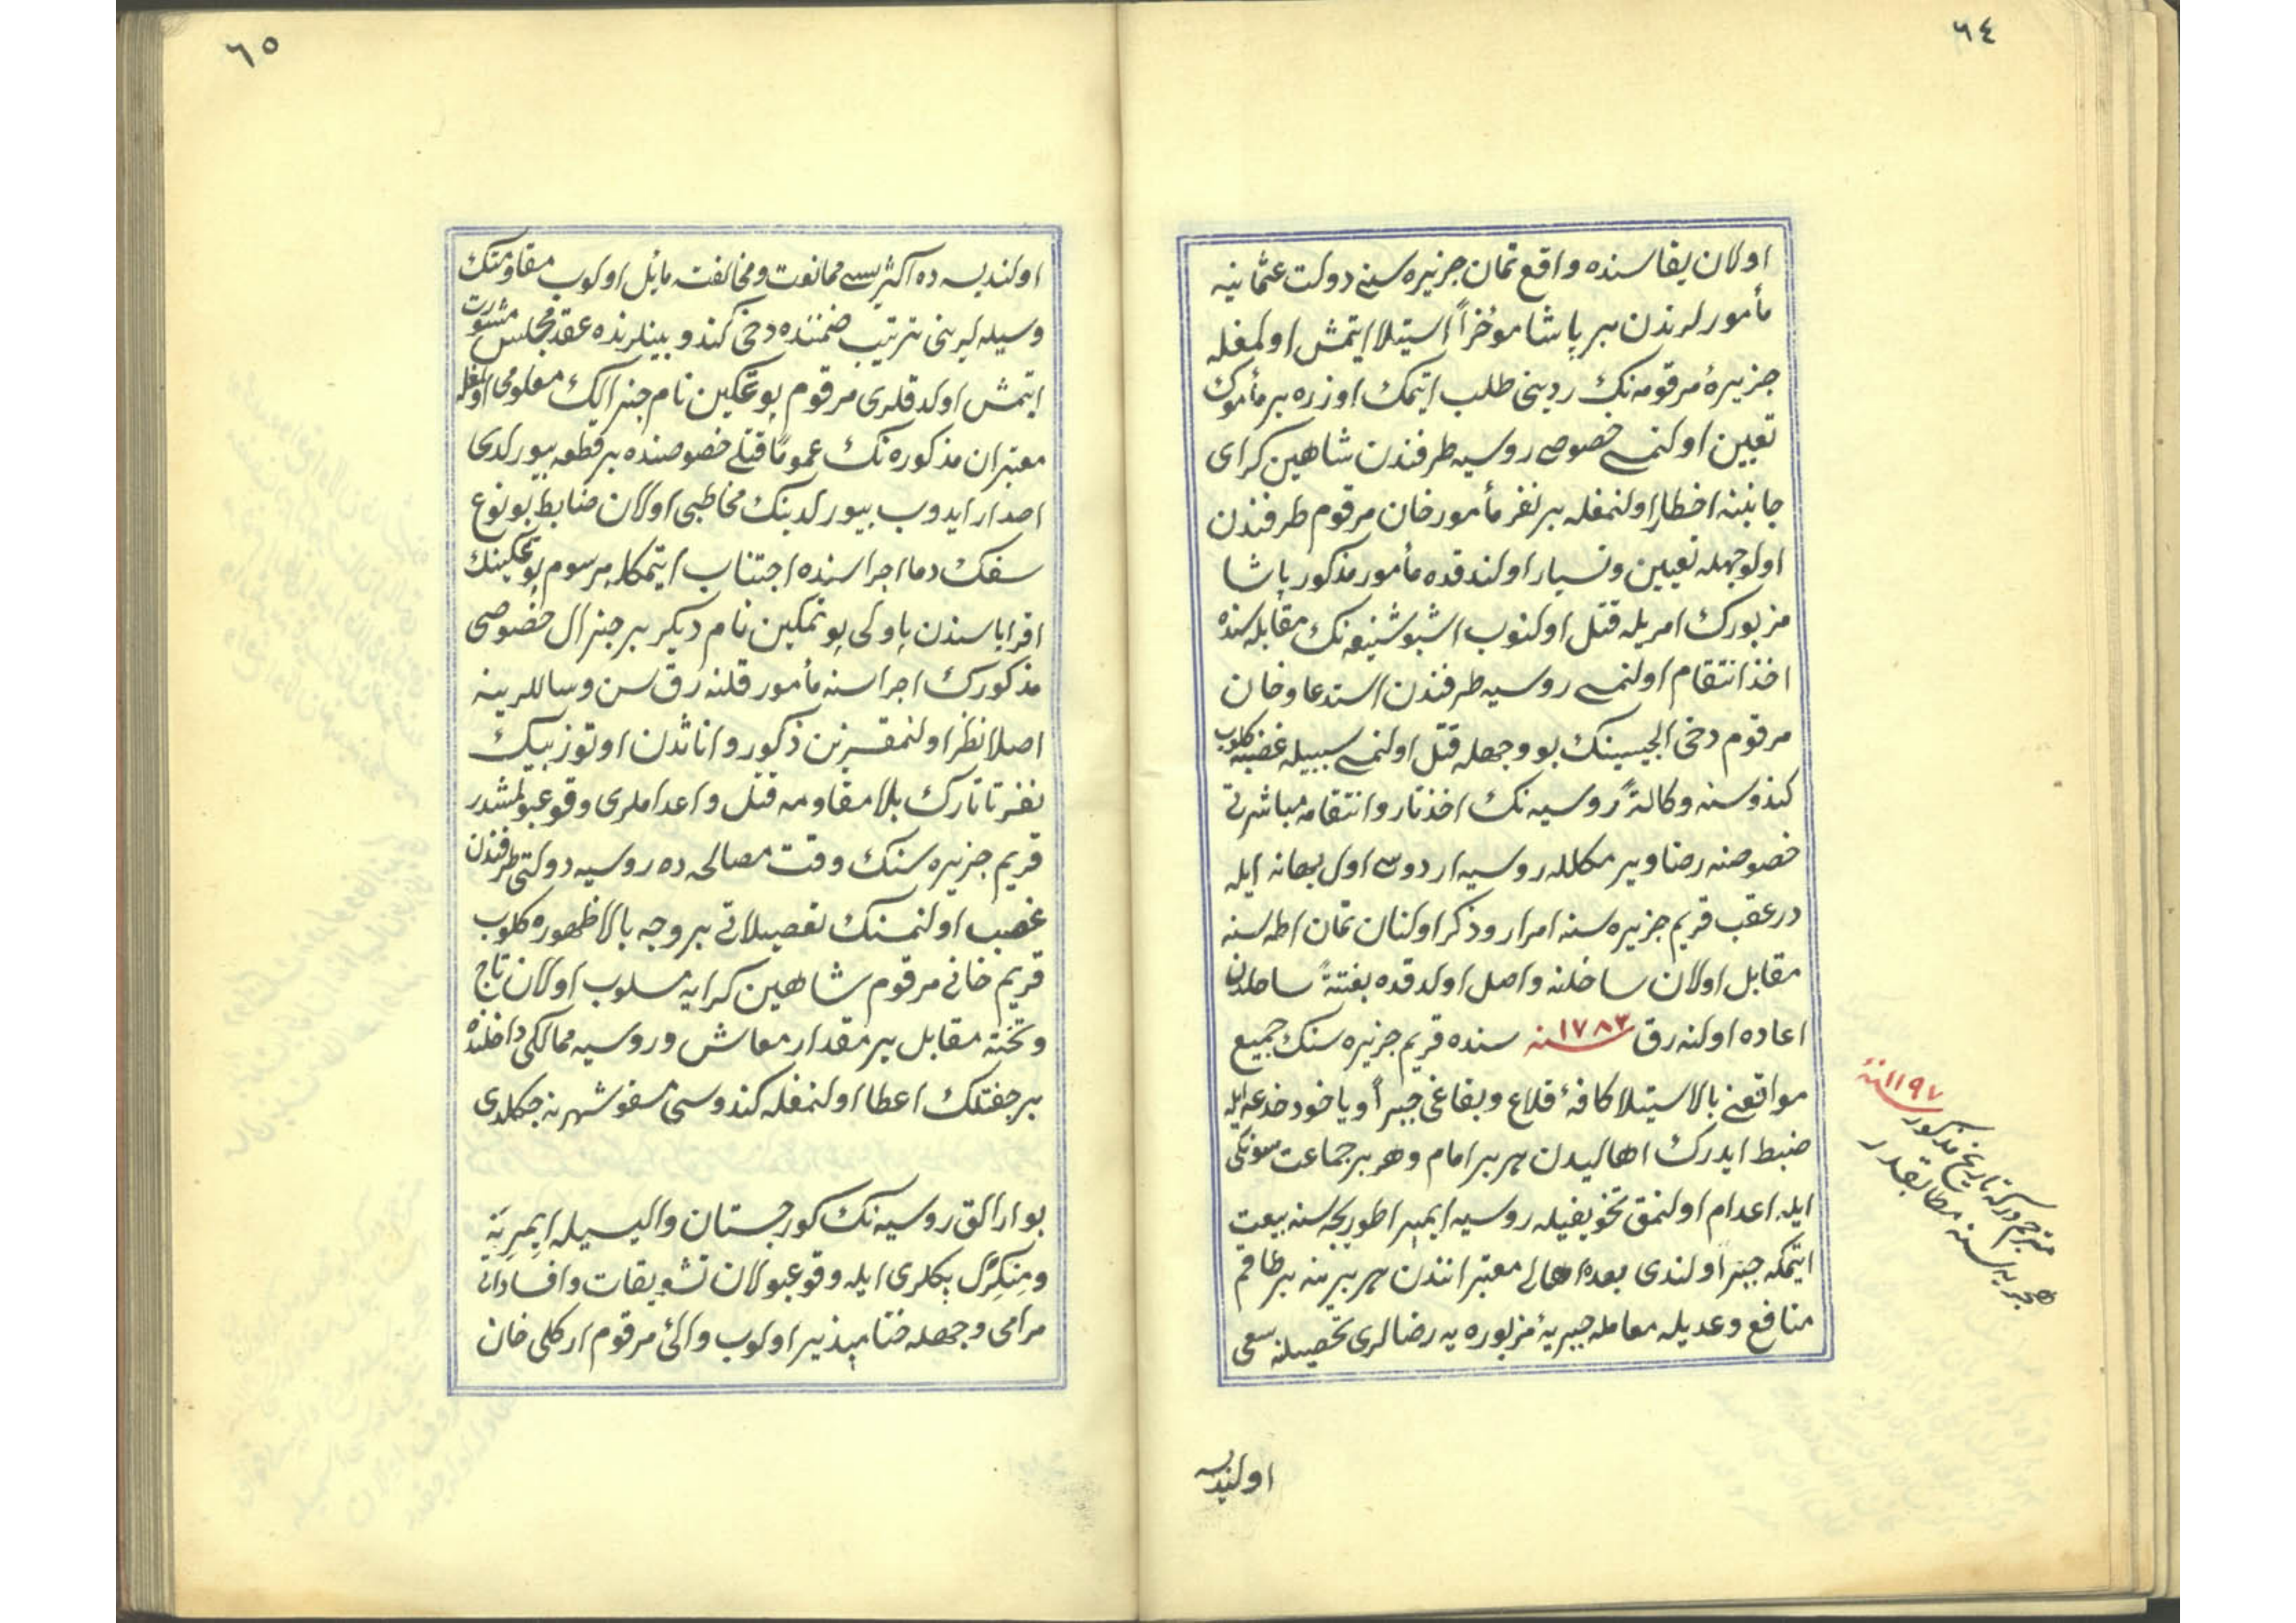 ٦٤
اولان يقاسنده واقع تمان جزيره سنى دولت عثمانيه
مأمورلرندن بر پاشا مؤخراً استيلا ايتمش اولمغله
جزيرۀ مرقومه نك ردينى طلب ايتمك اوزره بر مأمورك
تعيين اولنمسى خصوصى روسيه طرفندن شاهين كراى
جانبنه اخطار اولنمغله بر نفر مأمور خان مرقوم طرفندن
اولوجهله تعيين وتسيار اولندقده مأمور مذكور پاشا
مزبورك امريله قتل اولنوب اشبو شنيعه نك مقابله سنده
اخذ انتقام اولنمسى روسيه طرفندن استدعا وخان
مرقوم دخى ايلچيسينك بو وجهله قتل اولنمسى سببيله غضبه كلوب
كندوسنه وكالةً روسيه نك اخذ ثار وانتقامه مباشرتى
خصوصنه رضا ويرمكلله روسيه اردوسى اول بهانه ايله
درعقب قريم جزيره سنه امرار وذكر اولنان تمان اطه سنه
مقابل اولان ساحلنه واصل اولدقده بغتةً ساحلدن
اعاده اولنه رق ١٧٨٣ سنه سنده قريم جزيره سنك جميع
مواقعنى بالاستيلا كافۀ قلاع وبقاعى جبراً ويا خود خدعه ايله
ضبط ايدرك اهاليدن هر بر امام وهر بر جماعت سونكى
ايله اعدام اولنمق تخويفيله روسيه ايمپراطوريچه سنه بيعت
ايتمكه جبر اولندى بعده اهالى معتبرانندن هر بر ينه بر طاقم
منافع وعديله معاملۀ جبريۀ مزبوره يه رضالرى تحصيلنه سعى
اولنديسه
سنه ١١٩٧
مترجم دركه تاريخ مذكور
هجريه سنه مطابقدر
٦٥
اولنديسه ده اكثريسى ممانعت ومخالفته مائل اولوب مقاومتك
وسيله لرينى ترتيب ضمننده دخى كندو بينلرنده عقد مجلس مشورت
ايتمش اولدقلرى مرقوم پوتمكين نام جنرالك معلومى اولمغله
معتبران مذكوره نك عموماً قتلى خصوصنده بر قطعه بيورلدى
اصدار ايدوب بيورلدينك مخاطبى اولان ضابط بو نوع
سفك دما اجراسنده اجتناب ايتمكله مرسوم پوتمكينك
اقرباسندن پاولى پوتمكين نام ديكر بر جنرال خصوصى
مذكورك اجراسنه مأمور قلنه رق سن وساللرينه
اصلا نظر اولنمقسزين ذكور واناثدن اوتوز بيك
نفر تاتارك بلا مقاومه قتل واعداملرى وقوعبولمشدر
قريم جزيره سنك وقت مصالحه ده روسيه دولتى طرفندن
غصب اولنمسنك تفصيلاتى بر وجه بالا ظهوره كلوب
قريم خانى مرقوم شاهين كرايه مسلوب اولان تاج
وتختنه مقابل بر مقدار معاش وروسيه ممالكى داخلنده
بر چفتلك اعطا اولنمغله كندوسى مسقو شهرينه چكلدى
بو ارالق روسيه نك كورجستان واليسيله ايمِرِيَه
ومِنكِرَل بكلرى ايله وقوعبولان تشويقات وافساداتى
مرامى وجهله ختامپذير اولوب والئ مرقوم اركلى خان